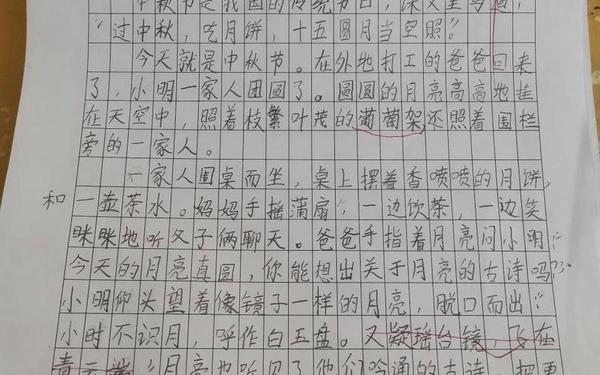 中秋节是我国的传统节日,
“过中秋,吃月饼,十五圆月当空照”。
今天就是中秋节。在外地打工的爸爸回来
了,小明一家人团圆了。圆圆的月亮高高地挂
在天空中,照着枝繁叶茂的葡萄架,还照着围栏
旁的一家人。
一家人围桌而坐,桌上摆着香喷喷的月饼,
和一壶茶水。妈妈手摇蒲扇,一边饮茶,一边笑
眯眯地听父子俩聊天。爸爸手指着月亮问小明:“
今天的月亮真圆,你能想出关于月亮的古诗吗?”
小明仰头望着像镜子一样的月亮,脱口而出:“
小时不识月,呼作白玉盘。又疑瑶台镜,飞在
青云端”月亮也听见了他们吟诵的古诗,把更